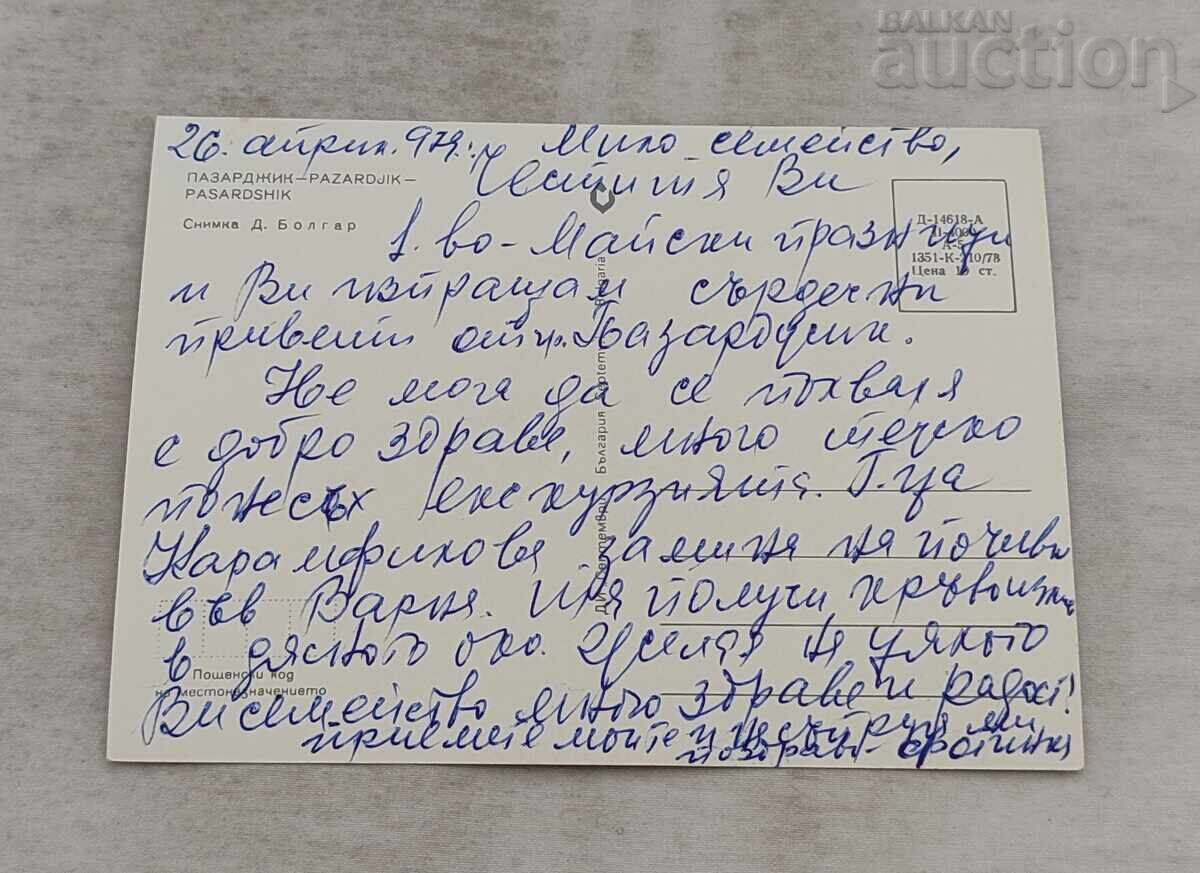 BALKAN
auction
26. април. 979 г. Мило семейство,
ПАЗАРДЖИК—PAZARDJIK—
PASARDSHIK
Снимка Д. Болгар
Честитя Ви
Д-14618-А
А-5
1351-К-210/78
Цена 10 ст.
1.во-Майски празници
и Ви изпращам сърдечни
привети от гр. Пазарджик.
Не мога да се похваля
с добро здраве, много тежко
понесох екскурзията. Г-ца
Карамфилова замина на почивка
във Варна. Тя получи кръвоизлив
в дясното око. Желая на цялото
Ви семейство много здраве и радост!
приемете моите и на сестра ми
поздрави
ДИ „Септември“ България Septemvri Bulgaria
Пощенски код
на местоназначението